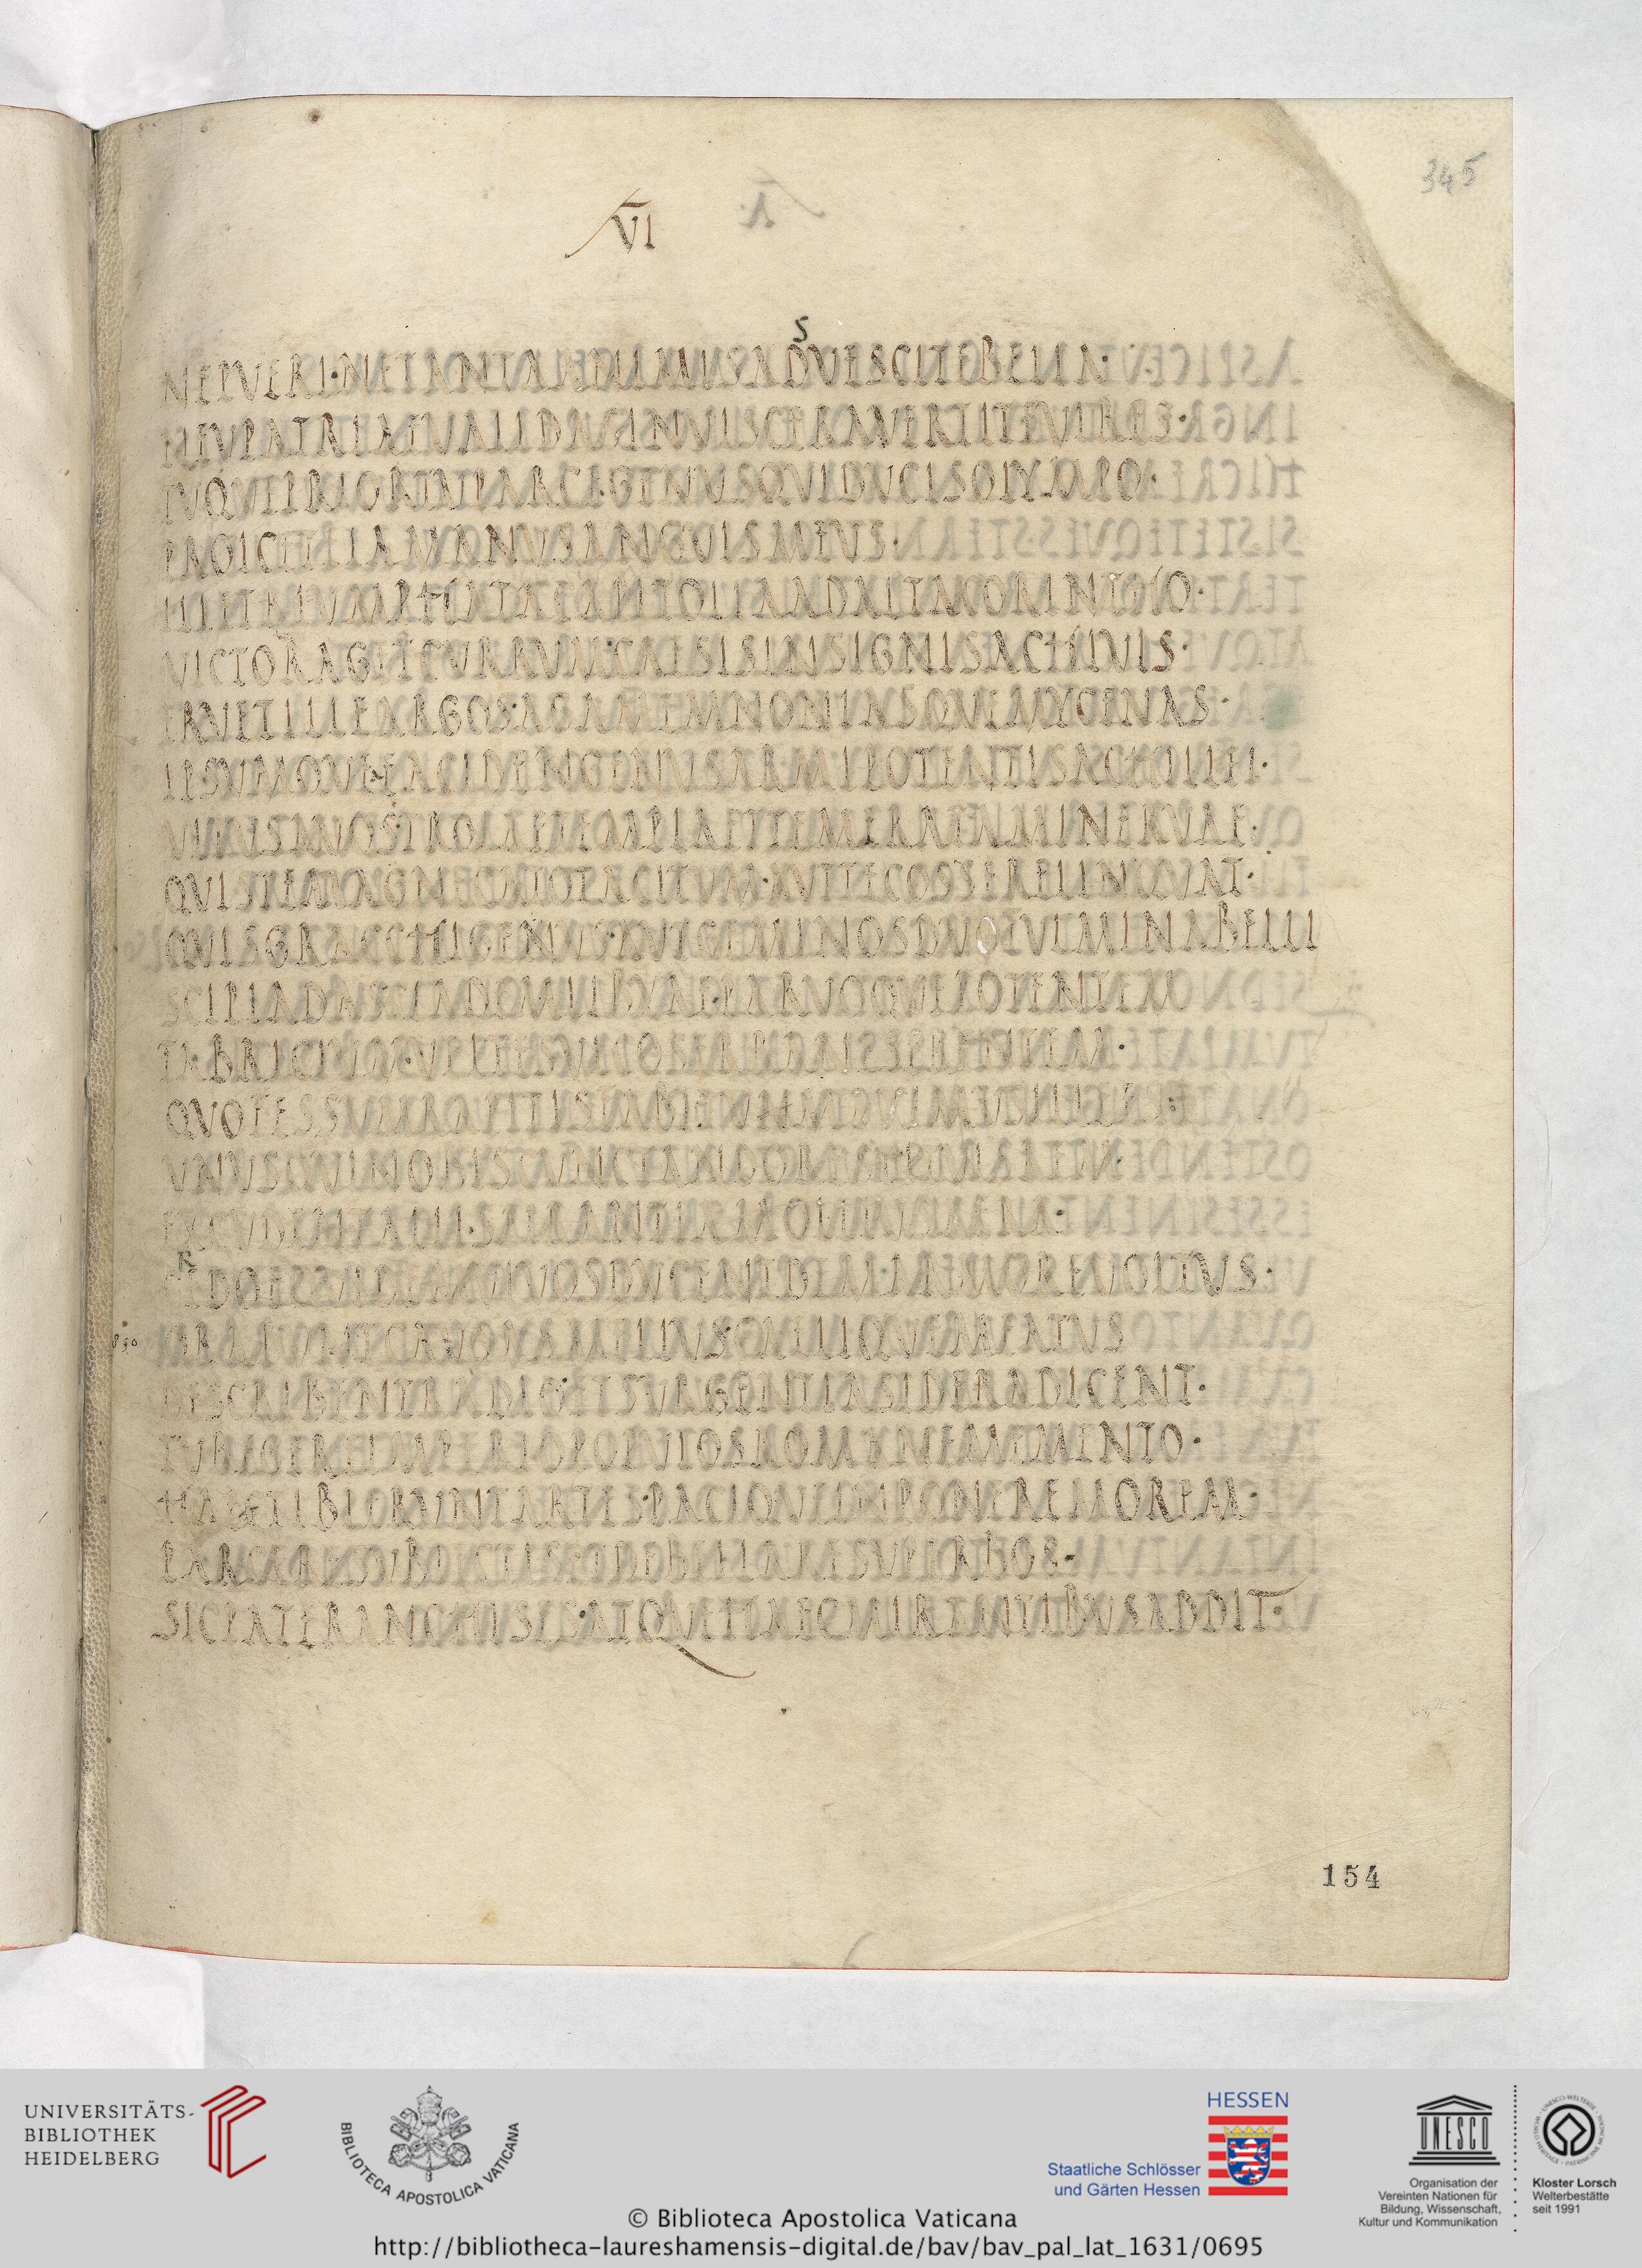 345
VI
S
NEPVERI·NETANTAANIMISADVESCITEBELLA·
NEVPATRIAEVALIDASINVISCERAVERTITEVIRES·
TVQVEPRIORTVPARCEGENVSQVIDVCISOLYMPO·
PROICETELAMANVSANGVISMEVS·
ILLETRIVMPHATACAPITOLIAADALTACORINTHO·
VICTORAGETCVRRVMCAESISINSIGNISACHIVIS·
ERVETILLEARGOS·AGAMEMNONIASQVEMYCENAS·
IPSVMQVEAEACIDENGENVSARMIPOTENTISACHILLEI·
VLTVSAVOSTROIAETEMPLAETTEMERATAMINERVAE·
QVISTEMAGNECATOTACITVM·AVTTECOSSERELINQVAT·
QVISGRACCHIGENVS·AVTGEMINOSDVOFVLMINABELLI
SCIPIADASCLADEMLIBYAE·PARVOQVEPOTENTEM
FABRICIVM
QVOFESSVMRAPITIS
VNVSQVINOBISCVNCTANDO
EXCVDENTALII·SPIRANTIA
R
CEDOVIVOSDVCENTDEMARMOREVOLTVS·
850 ORABVNTCAVSASMELIVS·CAELIQVEMEATVS
DESCRIBENTRADIO·ETSVRGENTIASIDERADICENT·
TVREGEREIMPERIOPOPVLOSROMANEMEMENTO·
HAETIBIERVNTARTES·PACIQVEIMPONEREMOREM·
PARCERESVBIECTISETDEBELLARESVPERBOS·
SICPATERANCHISES·ATQVEHAECMIRANTIBVSADDIT·
154
UNIVERSITÄTS-
BIBLIOTHEK
HEIDELBERG
BIBLIOTECA APOSTOLICA VATICANA
HESSEN
Staatliche Schlösser
und Gärten Hessen
UNESCO
Organisation der
Vereinten Nationen für
Bildung, Wissenschaft,
Kultur und Kommunikation
Kloster Lorsch
Welterbestätte
seit 1991
© Biblioteca Apostolica Vaticana
http://bibliotheca-laureshamensis-digital.de/bav/bav_pal_lat_1631/0695